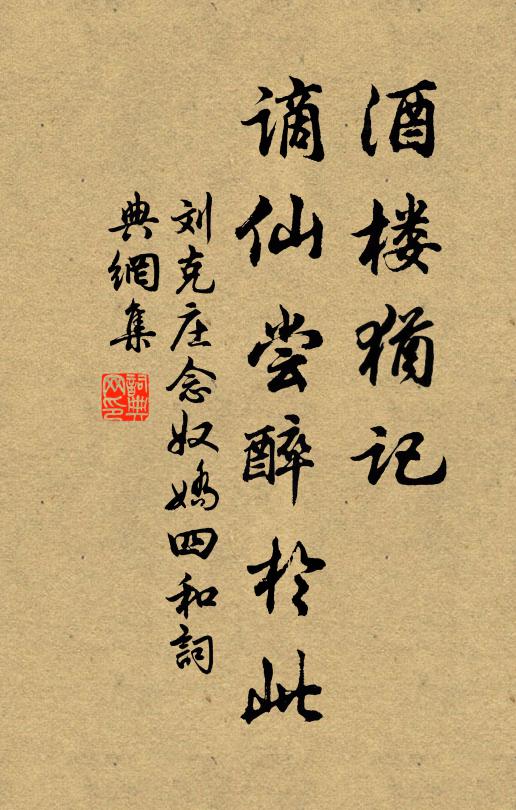 酒楼犹记
谪仙尝醉於此
刘克庄念奴娇四和詞
典網集
詞典網印